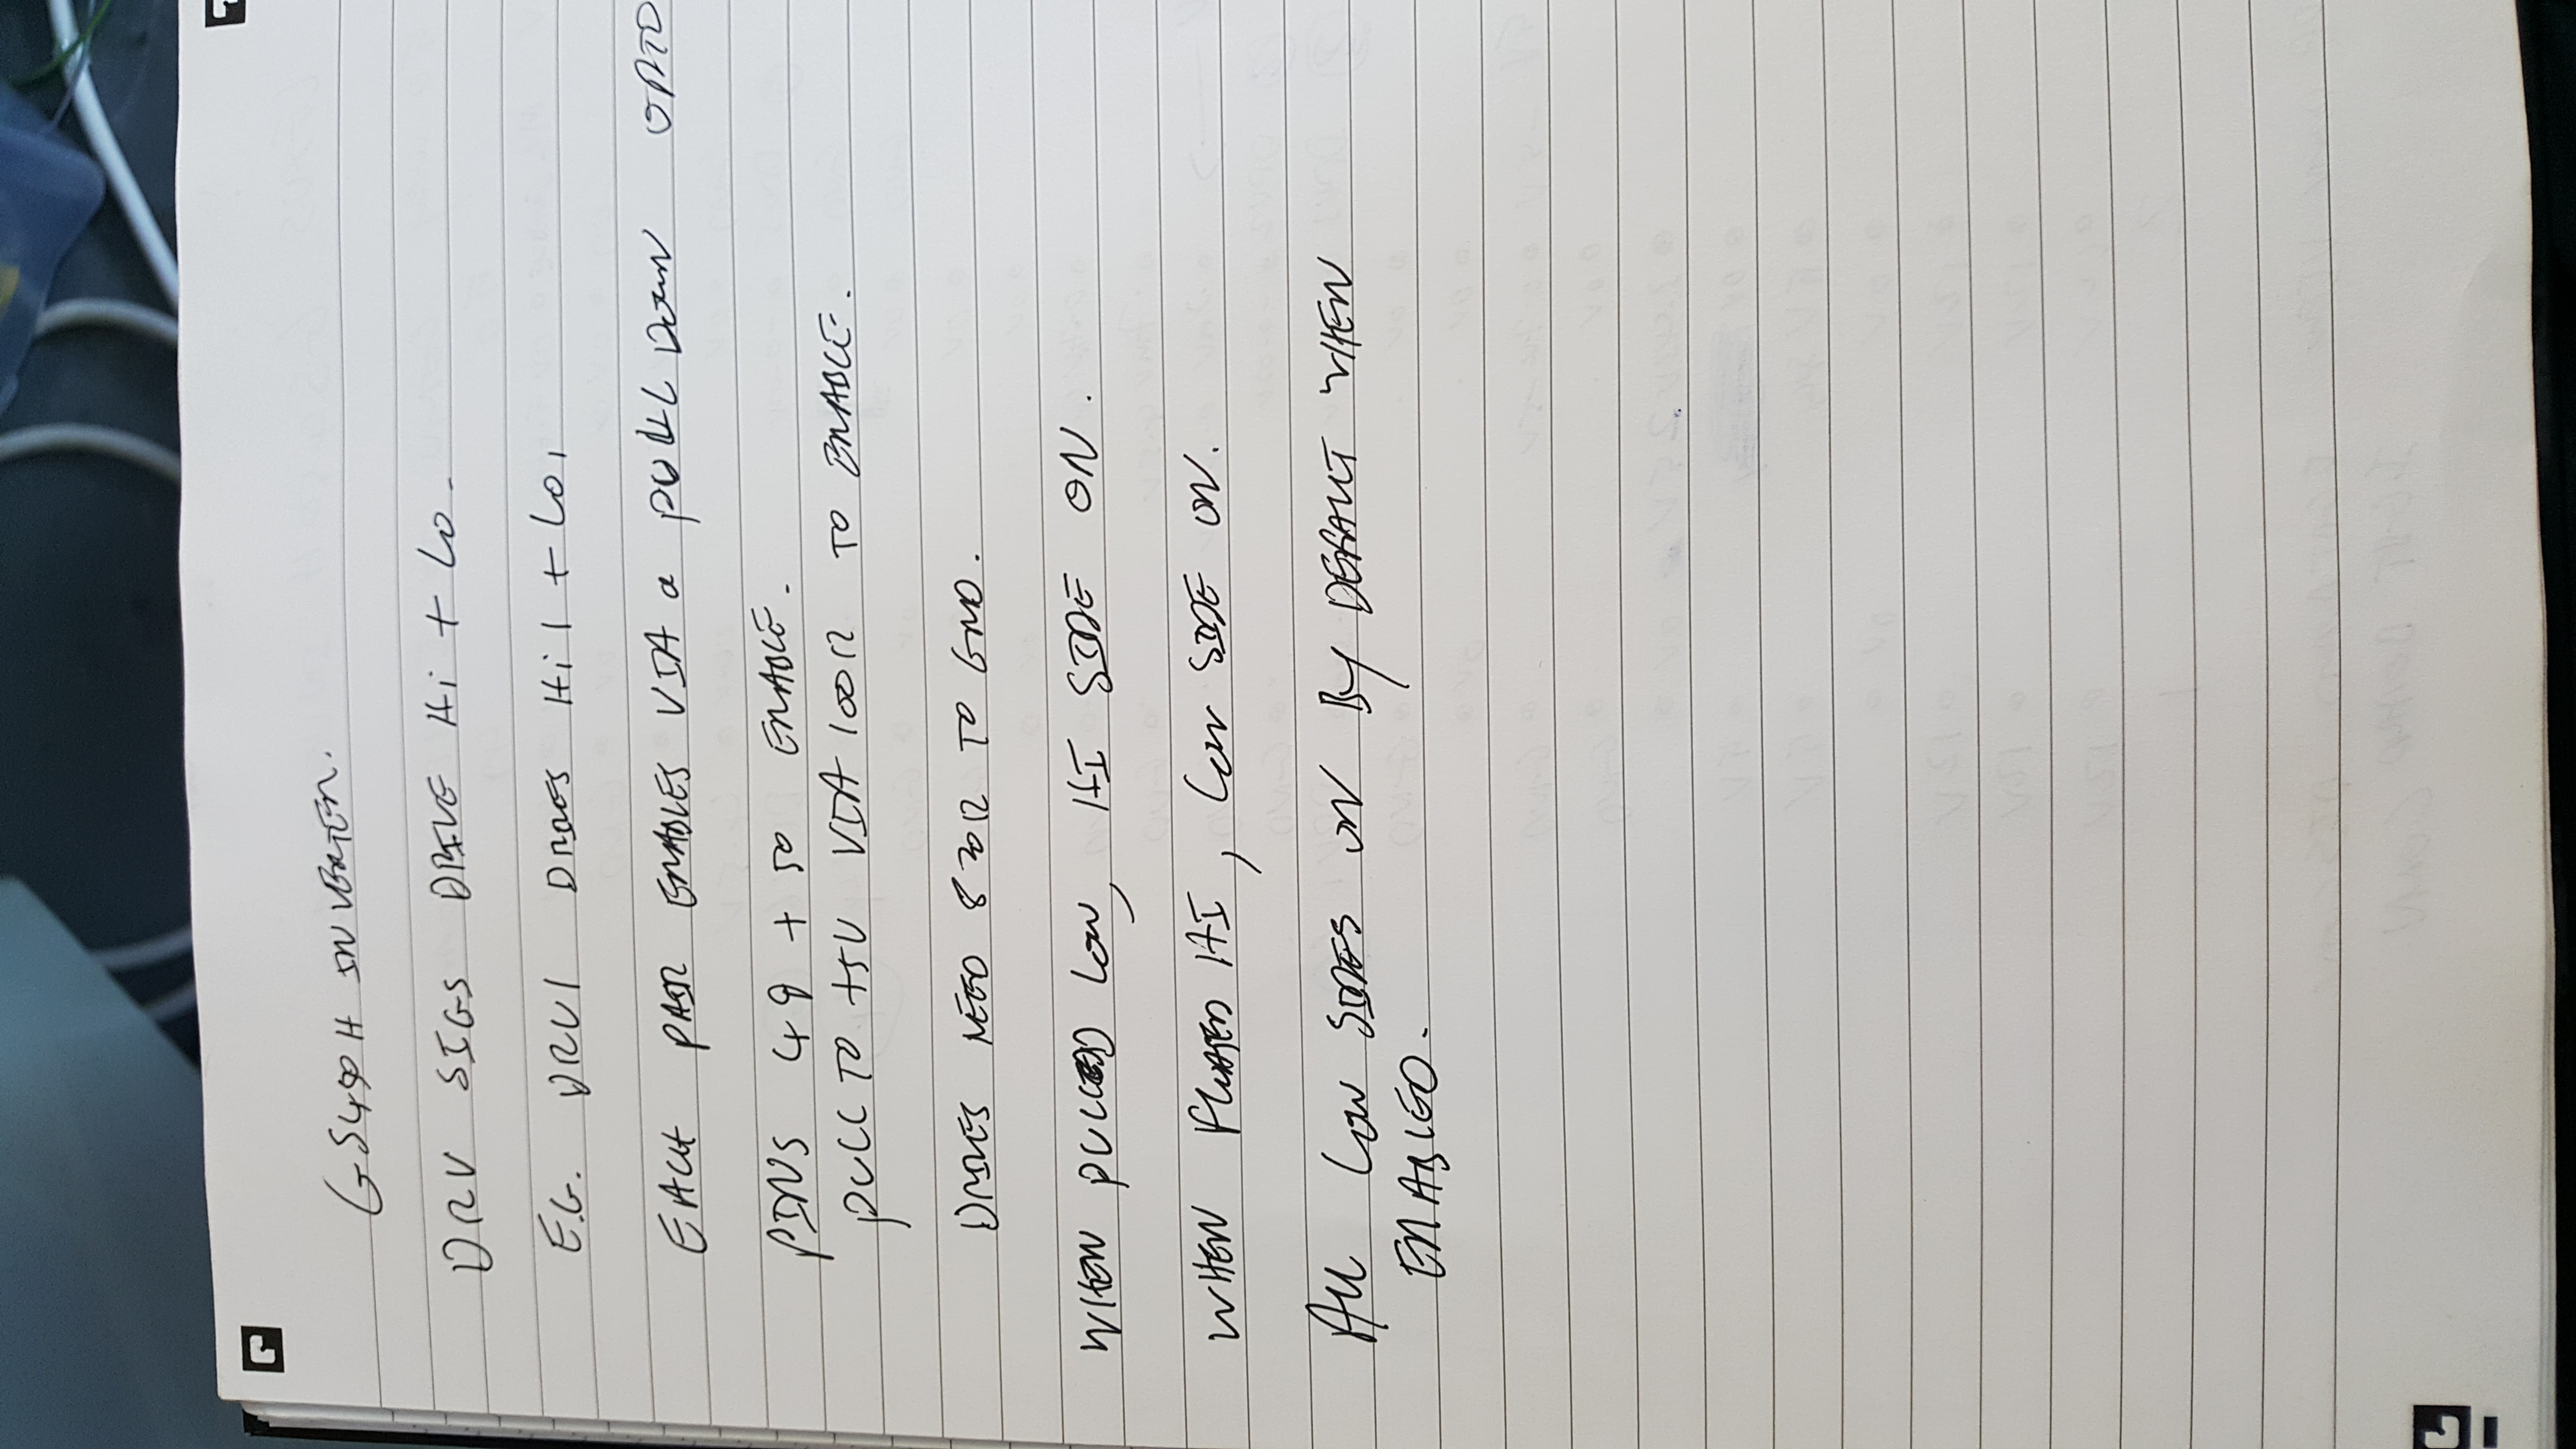 GS490H INVERTER.
DRV SIGS DRIVE Hi + Lo.
E.G. DRV1 DRIVES Hi1 + Lo1
EACH PAIR ENABLES VIA a PULL DOWN OPTO
PINS 49 + 50 ENABLE.
PULL TO +5V VIA 100Ω TO ENABLE.
DRIVES NEED 820Ω TO GND.
WHEN PULLED LOW, HI SIDE ON.
WHEN PULLED HI, LOW SIDE ON.
ALL LOW SIDES ON BY DEFAULT WHEN
ENABLED.